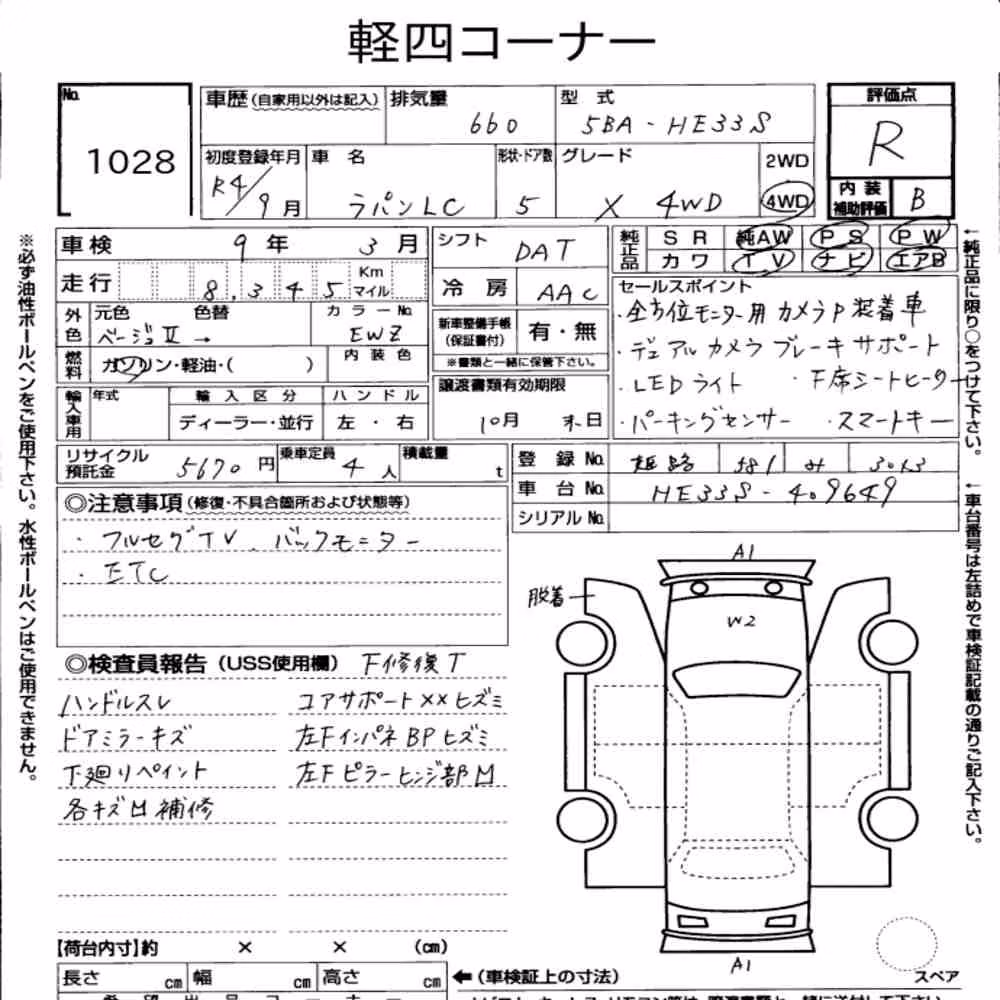 軽四コーナー
No. 1028
車歴(自家用以外は記入) 排気量 660
型式 5BA-HE33S
評価点 R
初度登録年月 R4/9月
車名 ラパンLC
形状・ドア数 5
グレード X 4WD
2WD
4WD
内装補助評価 B
車検 9年 3月
シフト DAT
純正品 SR 純AW PS PW
カワ TV ナビ エアB
走行 8,345 Km マイル
冷房 AAC
セールスポイント
・全方位モニター用カメラP装着車
・デュアルカメラブレーキサポート
・LEDライト ・F席シートヒーター
・パーキングセンサー ・スマートキー
外色 元色 ベージュII→ 色替 カラーNo. EWZ
新車整備手帳(保証書付) 有・無
※書類と一緒に保管下さい。
燃料 ガソリン・軽油・( ) 内装色
譲渡書類有効期限
10月 末日
輸入車用 年式 輸入区分 ハンドル
ディーラー・並行 左・右
リサイクル預託金 5670円 乗車定員 4人 積載量 t
登録No. 姫路 581 み 3013
車台No. HE33S-409649
シリアルNo.
◎注意事項(修復・不具合箇所および状態等)
・フルセグTV、バックモニター
・ETC
◎検査員報告(USS使用欄) F修復T
ハンドルスレ コアサポート××ヒズミ
ドアミラーキズ 左FインパネBPヒズミ
下廻りペイント 左Fピラーヒンジ部M
各キズM補修
A1
脱着
W2
A1
スペア
【荷台内寸】約 × × (cm)
長さ cm 幅 cm 高さ cm
←(車検証上の寸法)
※必ず油性ボールペンをご使用下さい。水性ボールペンはご使用できません。
←純正品に限り○をつけて下さい。
←車台番号は左詰めで車検証記載の通りご記入下さい。